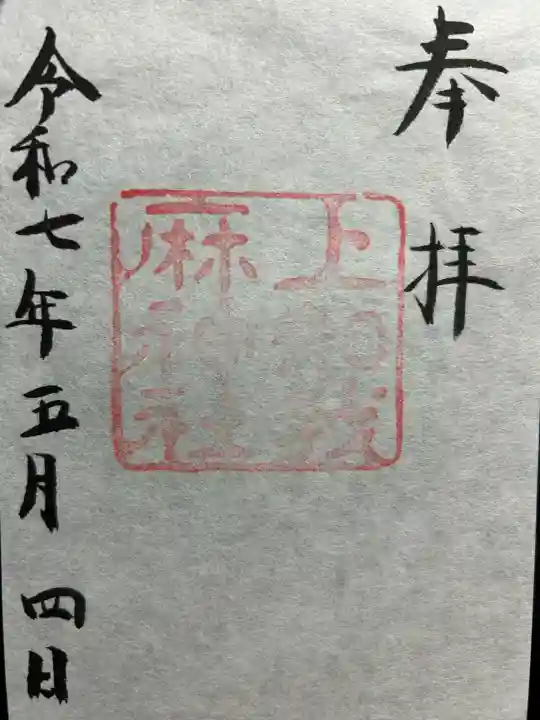 奉拝
上知我
麻神社
令和七年五月四日